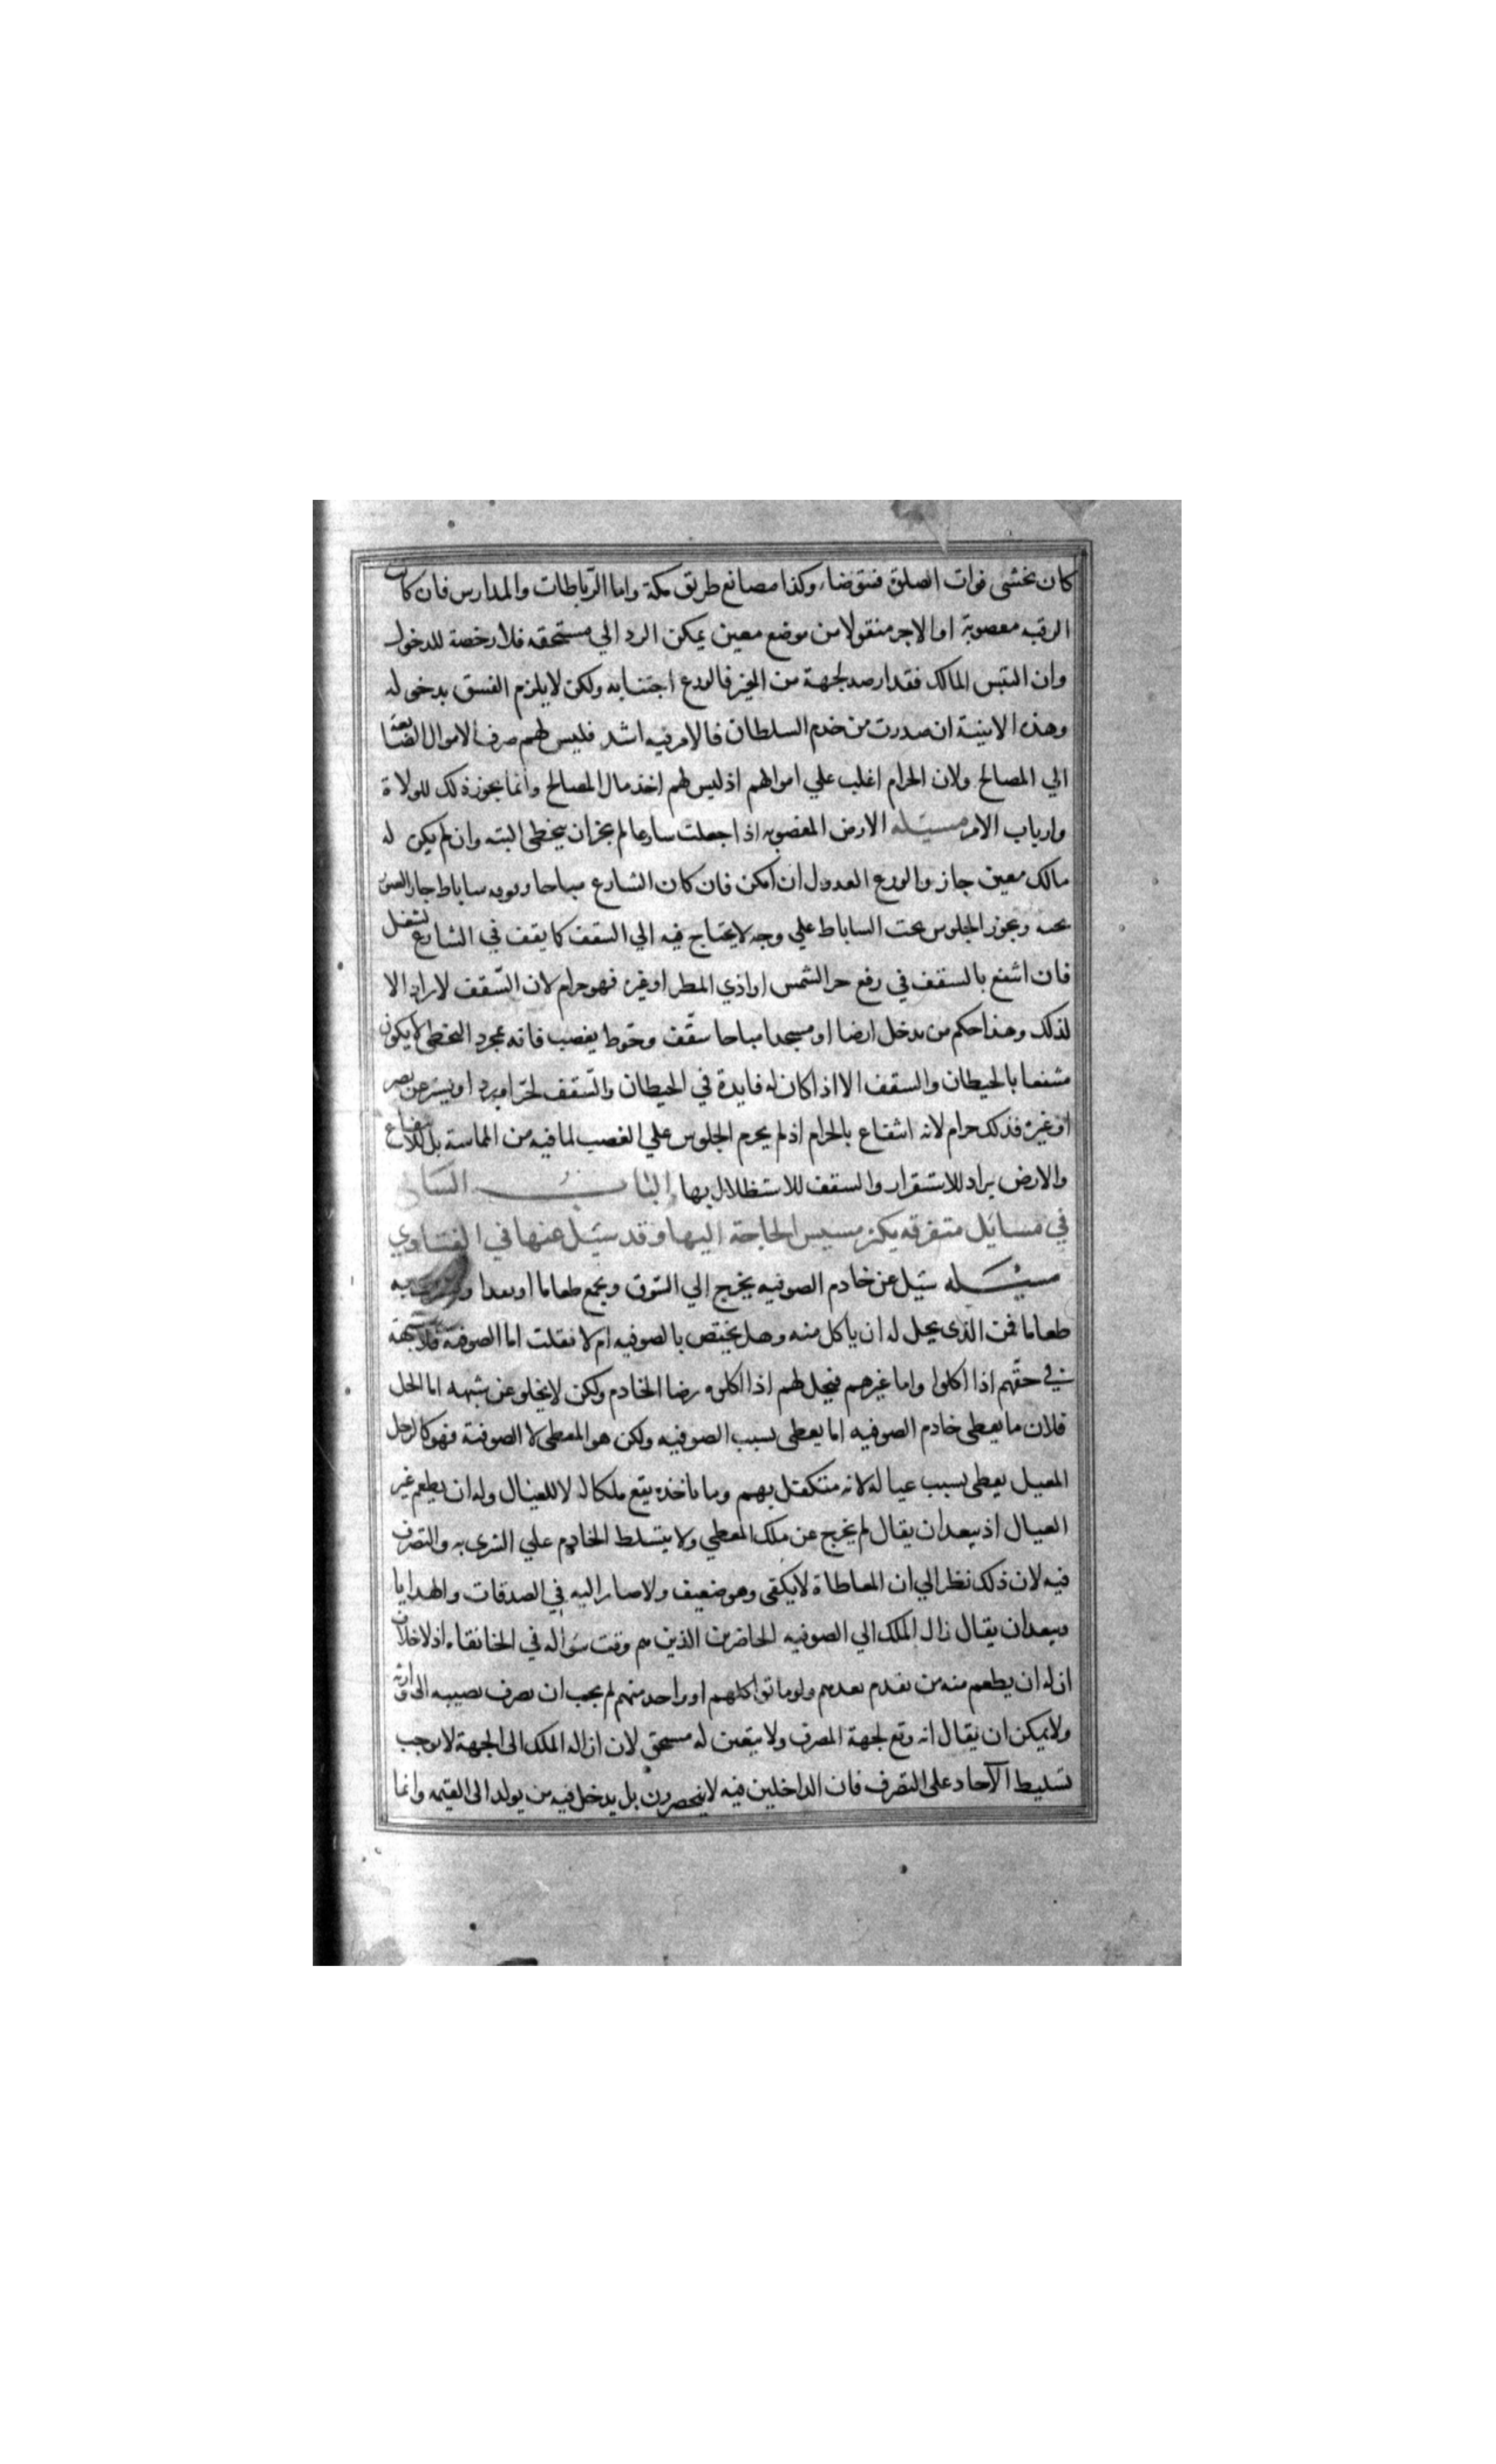 كان يخشى فوات الصلوة فيتوضاء وكذا مصانع طريق مكة واما الرباطات والمدارس فان كان
الرقبه مغصوبة او الاجر منقولا من موضع معين يمكن الرد الي مستحقه فلا رخصة للدخول
وان التبس المالك فقد ارصد لجهة من الخير فالورع اجتنابه ولكن لا يلزم الفسق بدخوله
وهذه الابنية ان صدرت من خدم السلطان فالامر فيه اشد فليس لهم صرف الاموال الضايعة
الي المصالح ولان الحرام اغلب علي اموالهم اذ ليس لهم اخذ مال المصالح وانما يجوز ذلك للولاة
وارباب الامر مسيله الارض المغصوبه اذا جعلت شارعا لم يجز ان يتخطى البته وان لم يكن له
مالك معين جاز والورع العدول ان امكن فان كان الشارع مباحا وفوقه ساباط جاز العبور
تحته ويجوز الجلوس تحت الساباط علي وجه لا يحتاج فيه الي السقف كما يقف في الشارع لشغل
فان انتفع بالسقف في رفع حر الشمس او اذي المطر او غيره فهو حرام لان السقف لا يراد الا
لذلك وهذا حكم من يدخل ارضا او مسجدا مباحا سقف وحوط بغصب فانه بمجرد التخطي لا يكون
منتفعا بالحيطان والسقف الا اذا كان له فايدة في الحيطان والسقف لحر او برد او يستر عن بصر
او غيره فذلك حرام لانه انتفاع بالحرام اذ لم يحرم الجلوس علي الغصب لما فيه من المماسة بل للانتفاع
والارض يراد للاستقرار والسقف للاستظلال بها الباب السابع
في مسايل متفرقه يكثر مسيس الحاجة اليها وقد سيل عنها في الفتاوي
مسيله سيل عن خادم الصوفيه يخرج الي السوق ويجمع طعاما او نقدا به
طعاما فمن الذى يحل له ان ياكل منه وهل يختص بالصوفيه ام لا فقلت اما الصوفية فلا شبهة
في حقهم اذا اكلوا واما غيرهم فيحل لهم اذا اكلوه برضا الخادم ولكن لا يخلو عن شبهه اما الحل
فلان ما يعطى خادم الصوفيه انما يعطى بسبب الصوفيه ولكن هو المعطى لا الصوفية فهو كالرجل
المعيل يعطى بسبب عياله لانه متكفل بهم وما ياخذه يقع ملكا له لا للعيال وله ان يطعم غير
العيال اذ يبعد ان يقال لم يخرج عن ملك المعطي ولا يتسلط الخادم علي الشرى به والتصرف
فيه لان ذلك نظر الي ان المعاطاة لا يكفى وهو ضعيف ولا صار اليه في الصدقات والهدايا
ويبعد ان يقال زال الملك الي الصوفيه الحاضرين الذين هم وقت سواله في الخانقاه اذ لا خلاف
ان له ان يطعم منه من تقدم بعدهم ولو ماتوا كلهم او واحد منهم لم يجب ان يصرف نصيبه الى وارثه
ولا يمكن ان يقال انه وقع لجهة المصرف ولا يتعين له مستحق لان ازاله الملك الى الجهة لا يوجب
تسليط الآحاد على التصرف فان الداخلين فيه لا ينحصرون بل يدخل فيه من يولد الى القيمه وانما